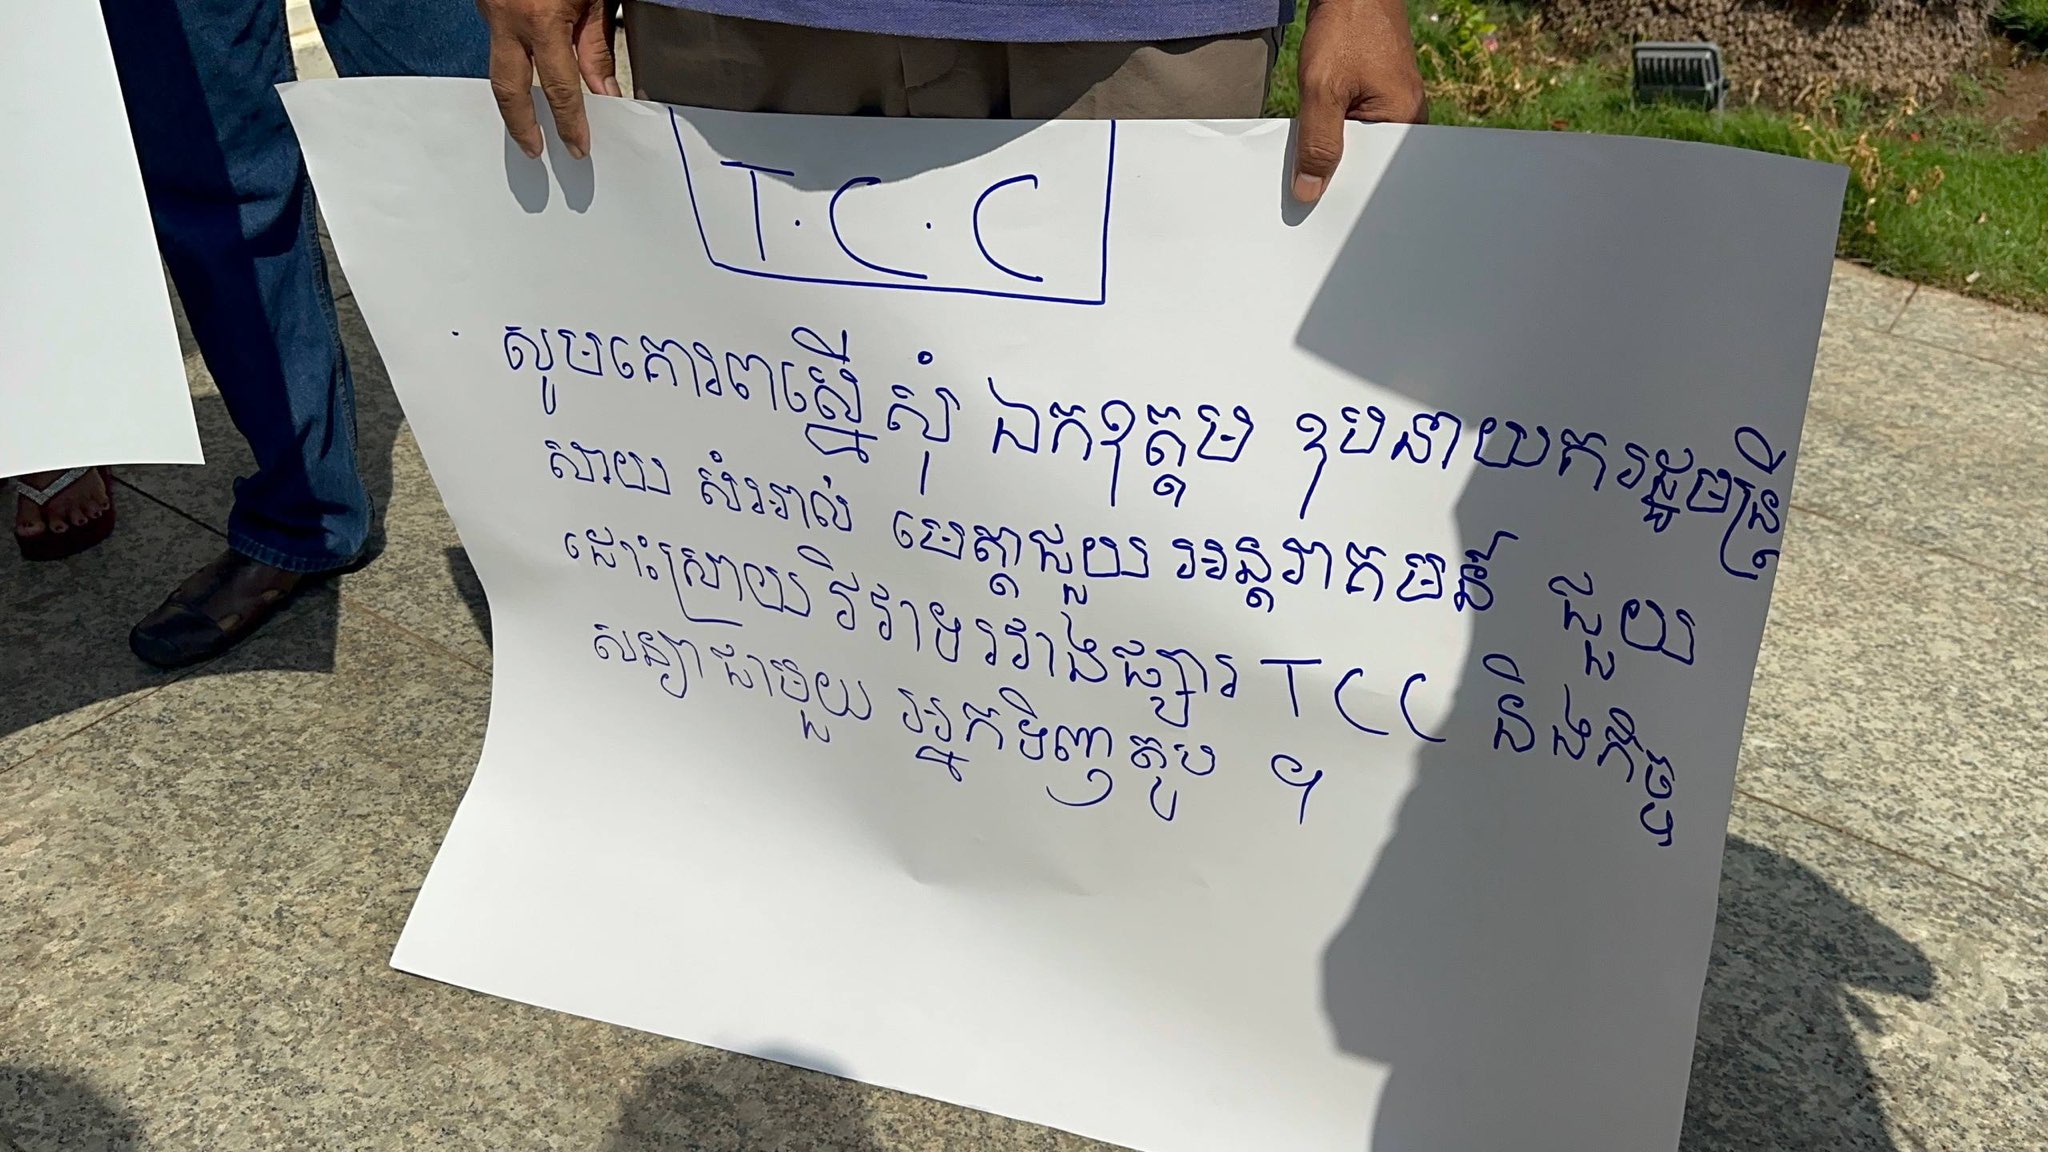 T.C.C
សូមគោរពស្នើសុំ ឯកឧត្តម ឧបនាយករដ្ឋមន្ត្រី
សាយ សំអាល់ មេត្តាជួយអន្តរាគមន៍ ជួយ
ដោះស្រាយវិវាទរវាងផ្សារ TCC និងកិច្ច
សន្យាជាមួយ អ្នកទិញតូប ។